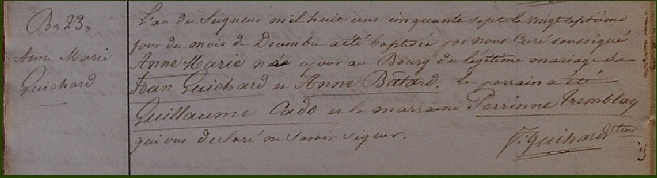 B. 23.
Anne Marie
Guichard
L'an du Seigneur mil huit cent cinquante sept le vingt septième
jour du mois de Decembre a été baptisée par nous Curé soussigné
Anne Marie née ce jour au Bourg du légitime mariage de
Jean Guichard et Anne Batard. Le parrain a été
Guillaume Cado et la marraine Perrinne Tremblay
qui ont declaré ne savoir signer.
J. Guihard